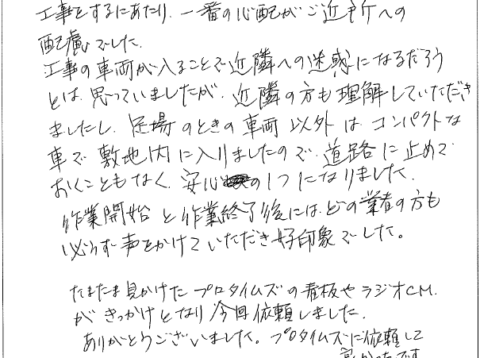 工事をするにあたり、一番の心配がご近所への
配慮でした。
工事の車両が入ることで近隣への迷惑になるだろう
とは思っていましたが、近隣の方も理解していただき
ましたし、足場のときの車両以外はコンパクトな
車で敷地内に入りましたので、道路に止めて
おくこともなく、安心の1つになりました。
作業開始と作業終了後には、どの業者の方も
必らず声をかけていただき好印象でした。
たまたま見かけたプロタイムズの看板やラジオCM
がきっかけとなり今回依頼しました。
ありがとうございました。プロタイムズに依頼して
良かったです